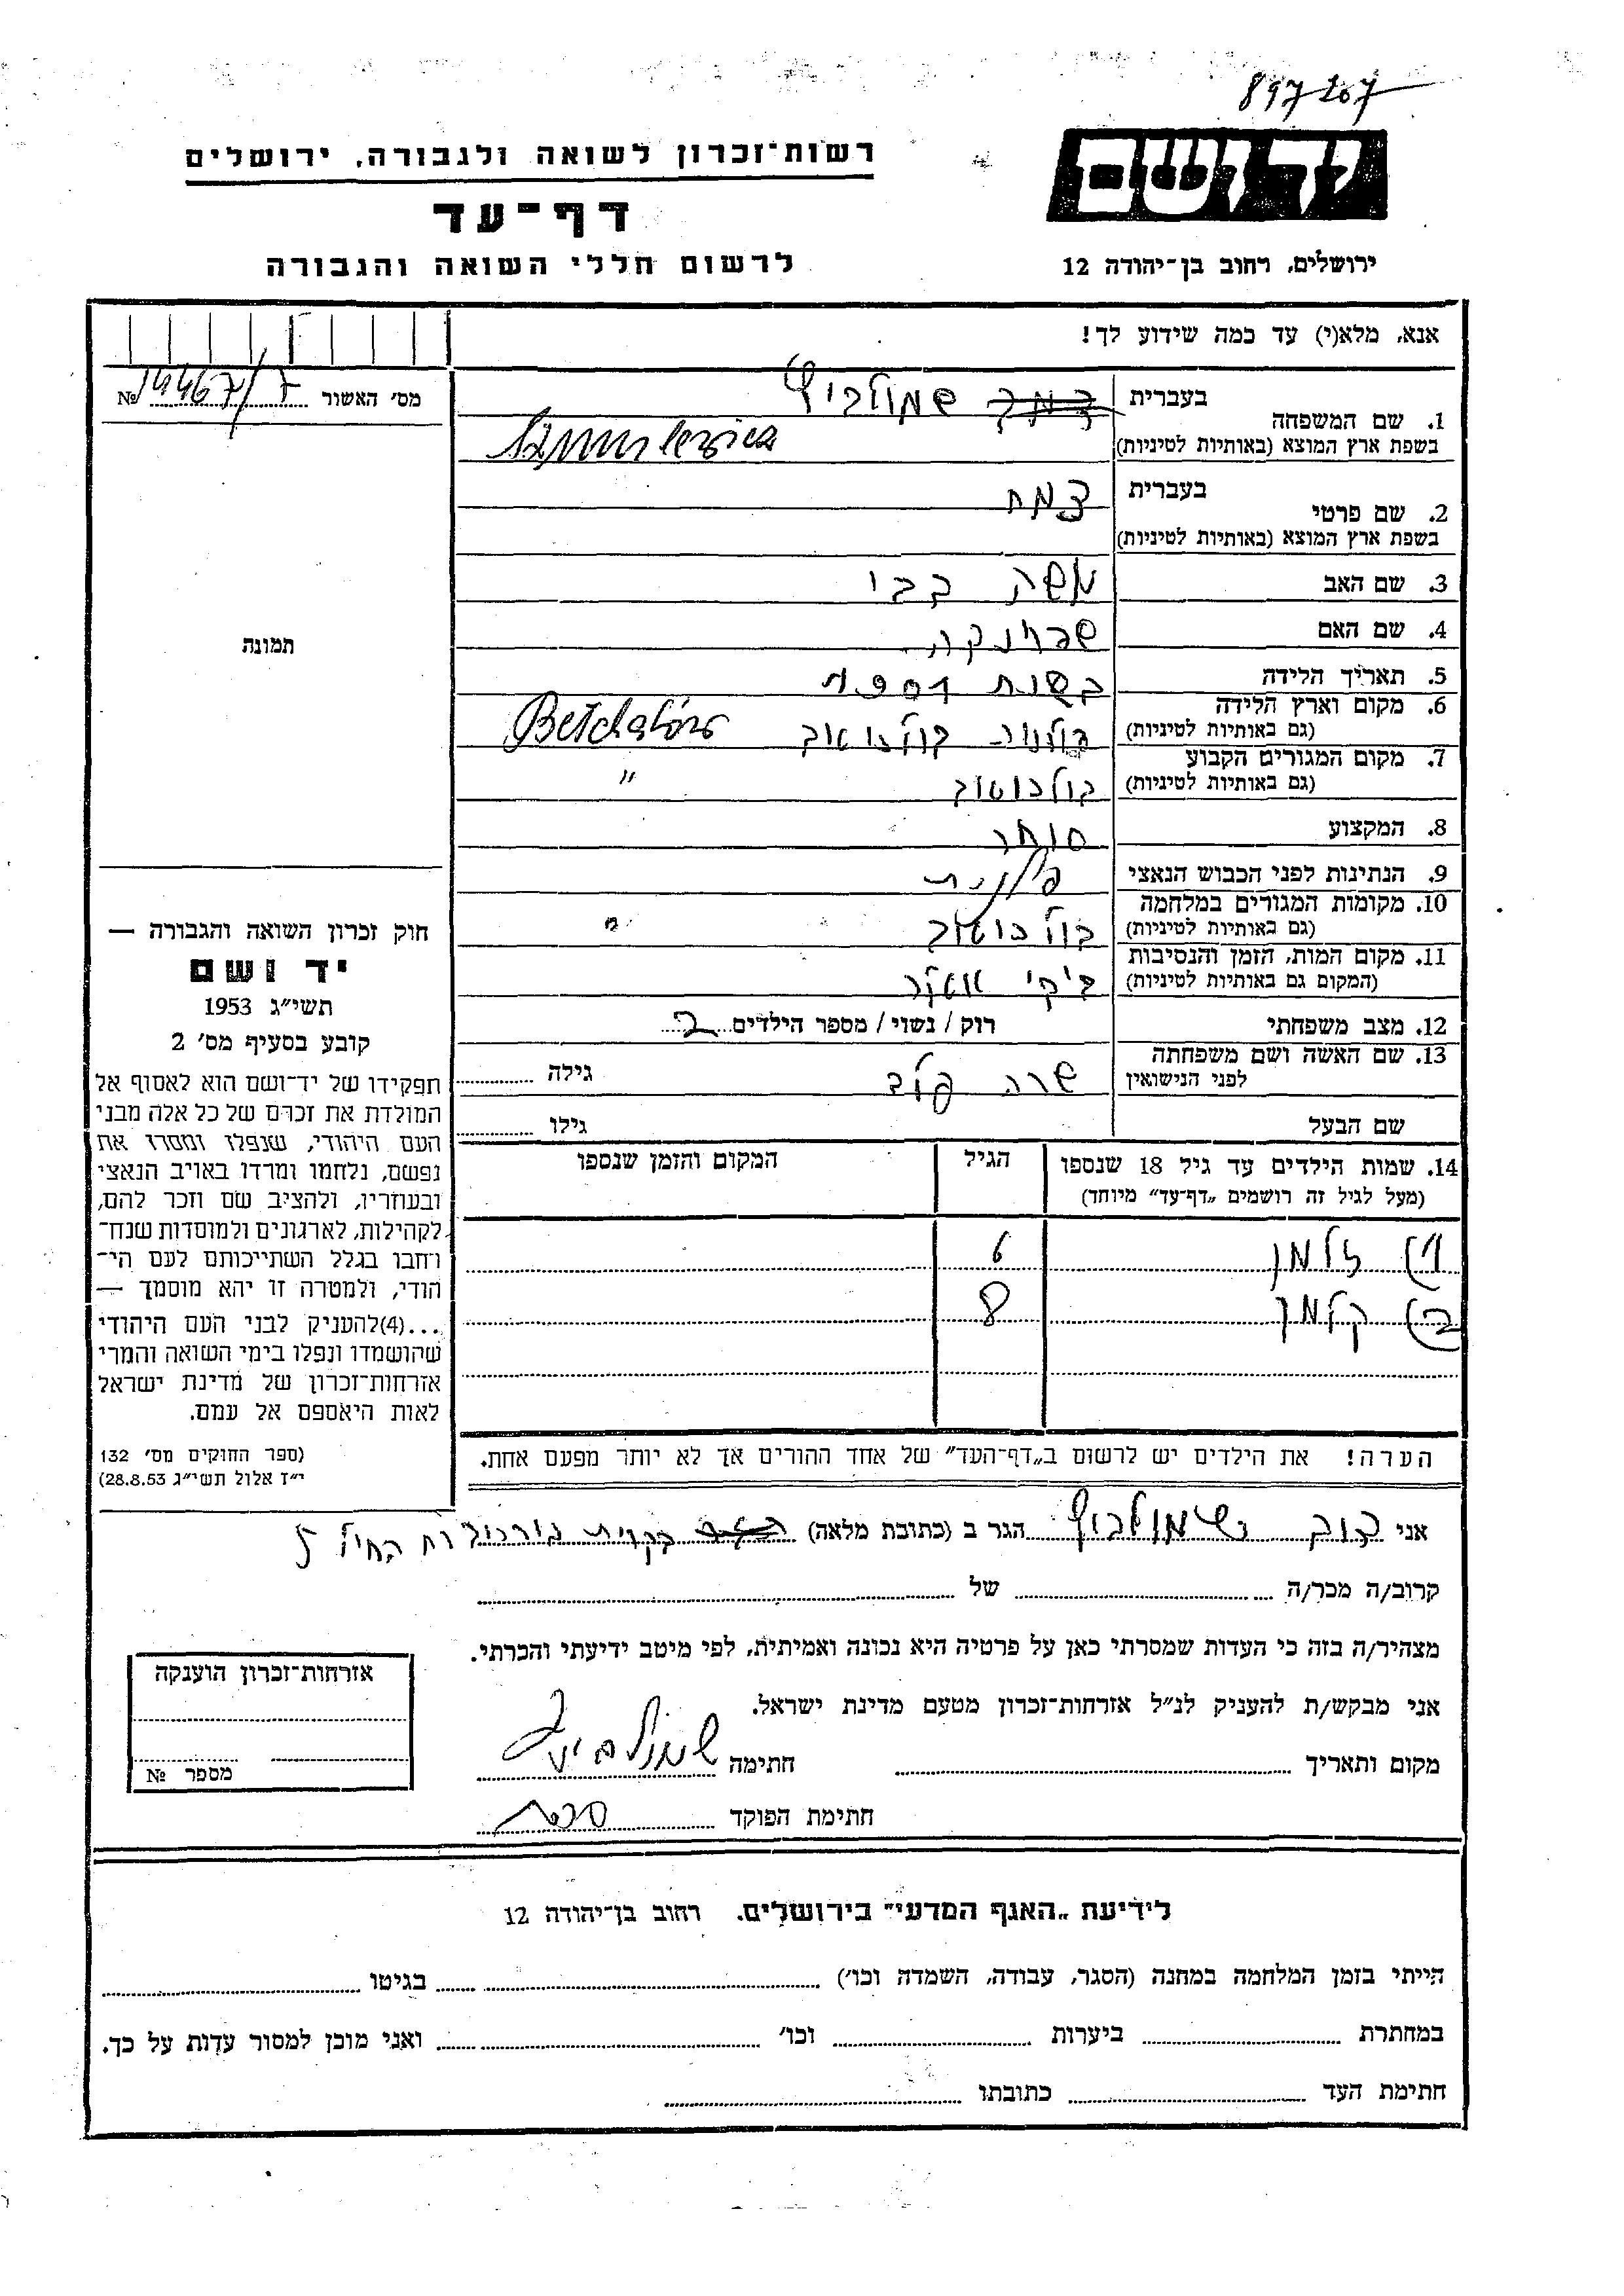 897207
רשות־זכרון לשואה ולגבורה, ירושלים
יד ושם
דף־עד
לרשום חללי השואה והגבורה
ירושלים, רחוב בן־יהודה 12
אנא, מלא(י) עד כמה שידוע לך!
מס׳ האשור №14467/7
1. שם המשפחה
בעברית שמולביץ
בשפת ארץ המוצא (באותיות לטיניות)
2. שם פרטי
בעברית צמח
בשפת ארץ המוצא (באותיות לטיניות)
3. שם האב משה
4. שם האם
5. תאריך הלידה בשנת
6. מקום וארץ הלידה
(גם באותיות לטיניות)
7. מקום המגורים הקבוע
(גם באותיות לטיניות) "
8. המקצוע סוחר
9. הנתינות לפני הכבוש הנאצי
10. מקומות המגורים במלחמה
(גם באותיות לטיניות) "
11. מקום המות, הזמן והנסיבות
(המקום גם באותיות לטיניות)
12. מצב משפחתי רוק / נשוי / מספר הילדים 2
13. שם האשה ושם משפחתה
לפני הנישואין שרה גילה
שם הבעל גילו
14. שמות הילדים עד גיל 18 שנספו הגיל המקום והזמן שנספו
(מעל לגיל זה רושמים „דף־עד” מיוחד)
1) זלמן 6
2) קלמן 8
הערה! את הילדים יש לרשום ב„דף־העד” של אחד ההורים אך לא יותר מפעם אחת.
תמונה
חוק זכרון השואה והגבורה —
יד ושם
תשי״ג 1953
קובע בסעיף מס׳ 2
תפקידו של יד־ושם הוא לאסוף אל
המולדת את זכרם של כל אלה מבני
העם היהודי, שנפלו ומסרו את
נפשם, נלחמו ומרדו באויב הנאצי
ובעוזריו, ולהציב שם וזכר להם,
לקהילות, לארגונים ולמוסדות שנח־
רחבו בגלל השתייכותם לעם הי־
הודי, ולמטרה זו יהא מוסמך —
...(4)להעניק לבני העם היהודי
שהושמדו ונפלו בימי השואה והמרי
אזרחות־זכרון של מדינת ישראל
לאות היאספם אל עמם.
(ספר החוקים מס׳ 132
י״ז אלול תשי״ג 28.8.53)
אני דוב שמולביץ הגר ב (כתובת מלאה) בקרית
קרוב/ה מכר/ה של
מצהיר/ה בזה כי העדות שמסרתי כאן על פרטיה היא נכונה ואמיתית, לפי מיטב ידיעתי והכרתי.
אני מבקש/ת להעניק לנ״ל אזרחות־זכרון מטעם מדינת ישראל.
מקום ותאריך חתימה שמולביץ
חתימת הפוקד
אזרחות־זכרון הוענקה
מספר №
לידיעת „האגף המדעי” בירושלים, רחוב בן־יהודה 12
הייתי בזמן המלחמה במחנה (הסגר, עבודה, השמדה וכו׳) בגיטו
במחתרת ביערות וכו׳ ואני מוכן למסור עדות על כך.
חתימת העד כתובתו